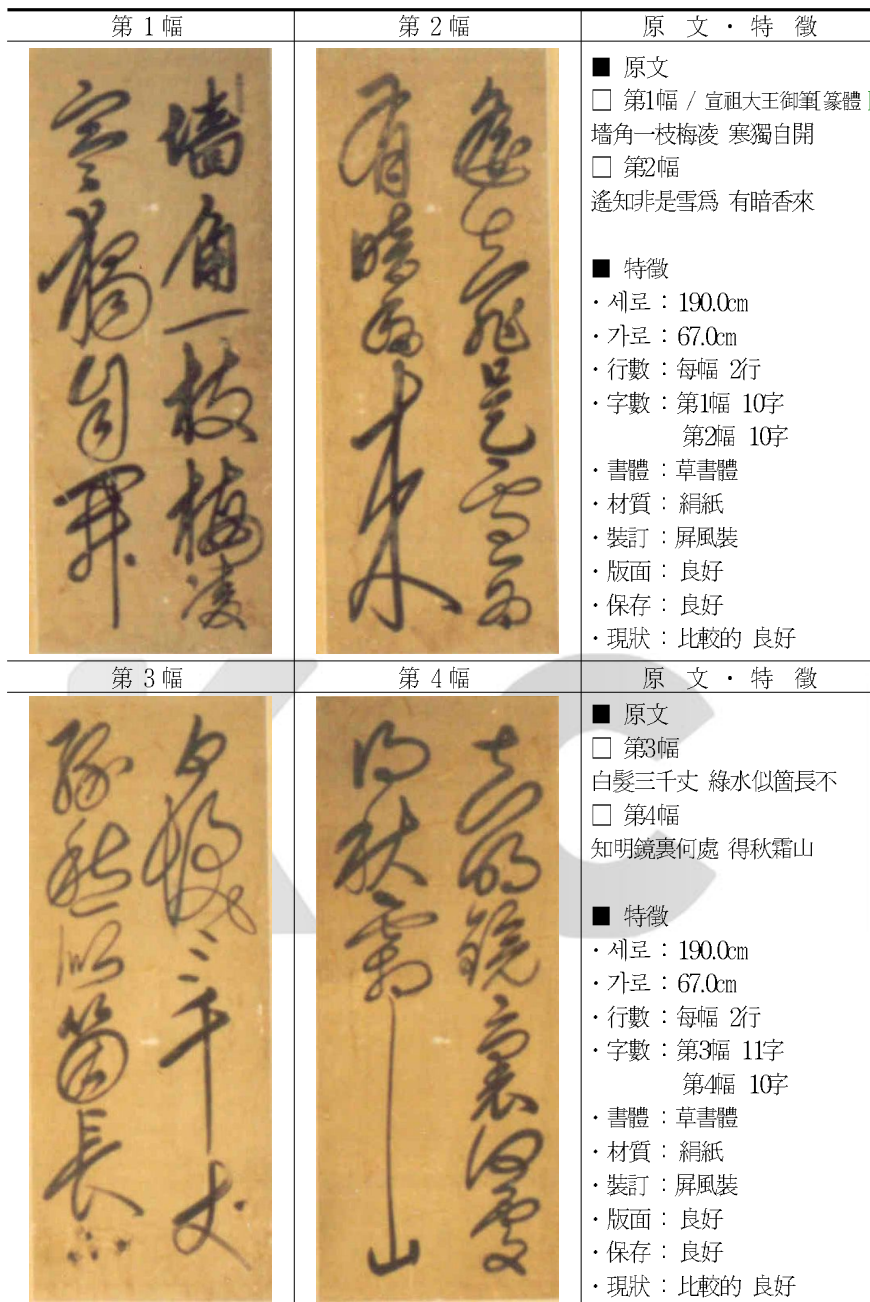 第 1幅
第 2幅
原 文 · 特 徵
墻角一枝梅凌
寒獨自開
遙知非是雪爲
有暗香來
■ 原文
□ 第1幅 / 宣祖大王御筆[篆體]
墻角一枝梅凌 寒獨自開
□ 第2幅
遙知非是雪爲 有暗香來
■ 特徵
· 세로 : 190.0㎝
· 가로 : 67.0㎝
· 行數 : 每幅 2行
· 字數 : 第1幅 10字
第2幅 10字
· 書體 : 草書體
· 材質 : 絹紙
· 裝訂 : 屛風裝
· 版面 : 良好
· 保存 : 良好
· 現狀 : 比較的 良好
第 3幅
第 4幅
原 文 · 特 徵
白髮三千丈
緣愁似箇長不
知明鏡裏何處
得秋霜山
■ 原文
□ 第3幅
白髮三千丈 綠水似箇長不
□ 第4幅
知明鏡裏何處 得秋霜山
■ 特徵
· 세로 : 190.0㎝
· 가로 : 67.0㎝
· 行數 : 每幅 2行
· 字數 : 第3幅 11字
第4幅 10字
· 書體 : 草書體
· 材質 : 絹紙
· 裝訂 : 屛風裝
· 版面 : 良好
· 保存 : 良好
· 現狀 : 比較的 良好